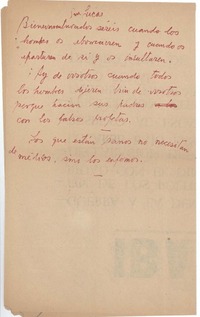 Lucas
Bienaventurados seréis cuando los
hombres os aborrecieren y cuando os
apartaren de sí y os insultaren.
¡Ay de vosotros cuando todos
los hombres dijeren bien de vosotros
porque hacían sus padres
con los falsos profetas.
Los que están sanos no necesitan
de médicos, sino los enfermos.